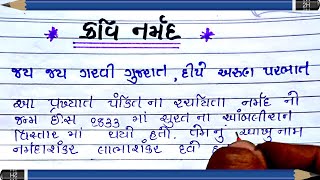 * કવિ નર્મદ *
જય જય ગરવી ગુજરાત , દીપે અરુણ પરભાત
આ પ્રખ્યાત પંક્તિ ના રચયિતા નર્મદ ની
જન્મ ઈ.સ ૧૮૩૩ માં સુરત ના આંબલીરાન
વિસ્તાર માં થયો હતો. તેમનુ નામ
નર્મદાશંકર લાભશંકર દવે